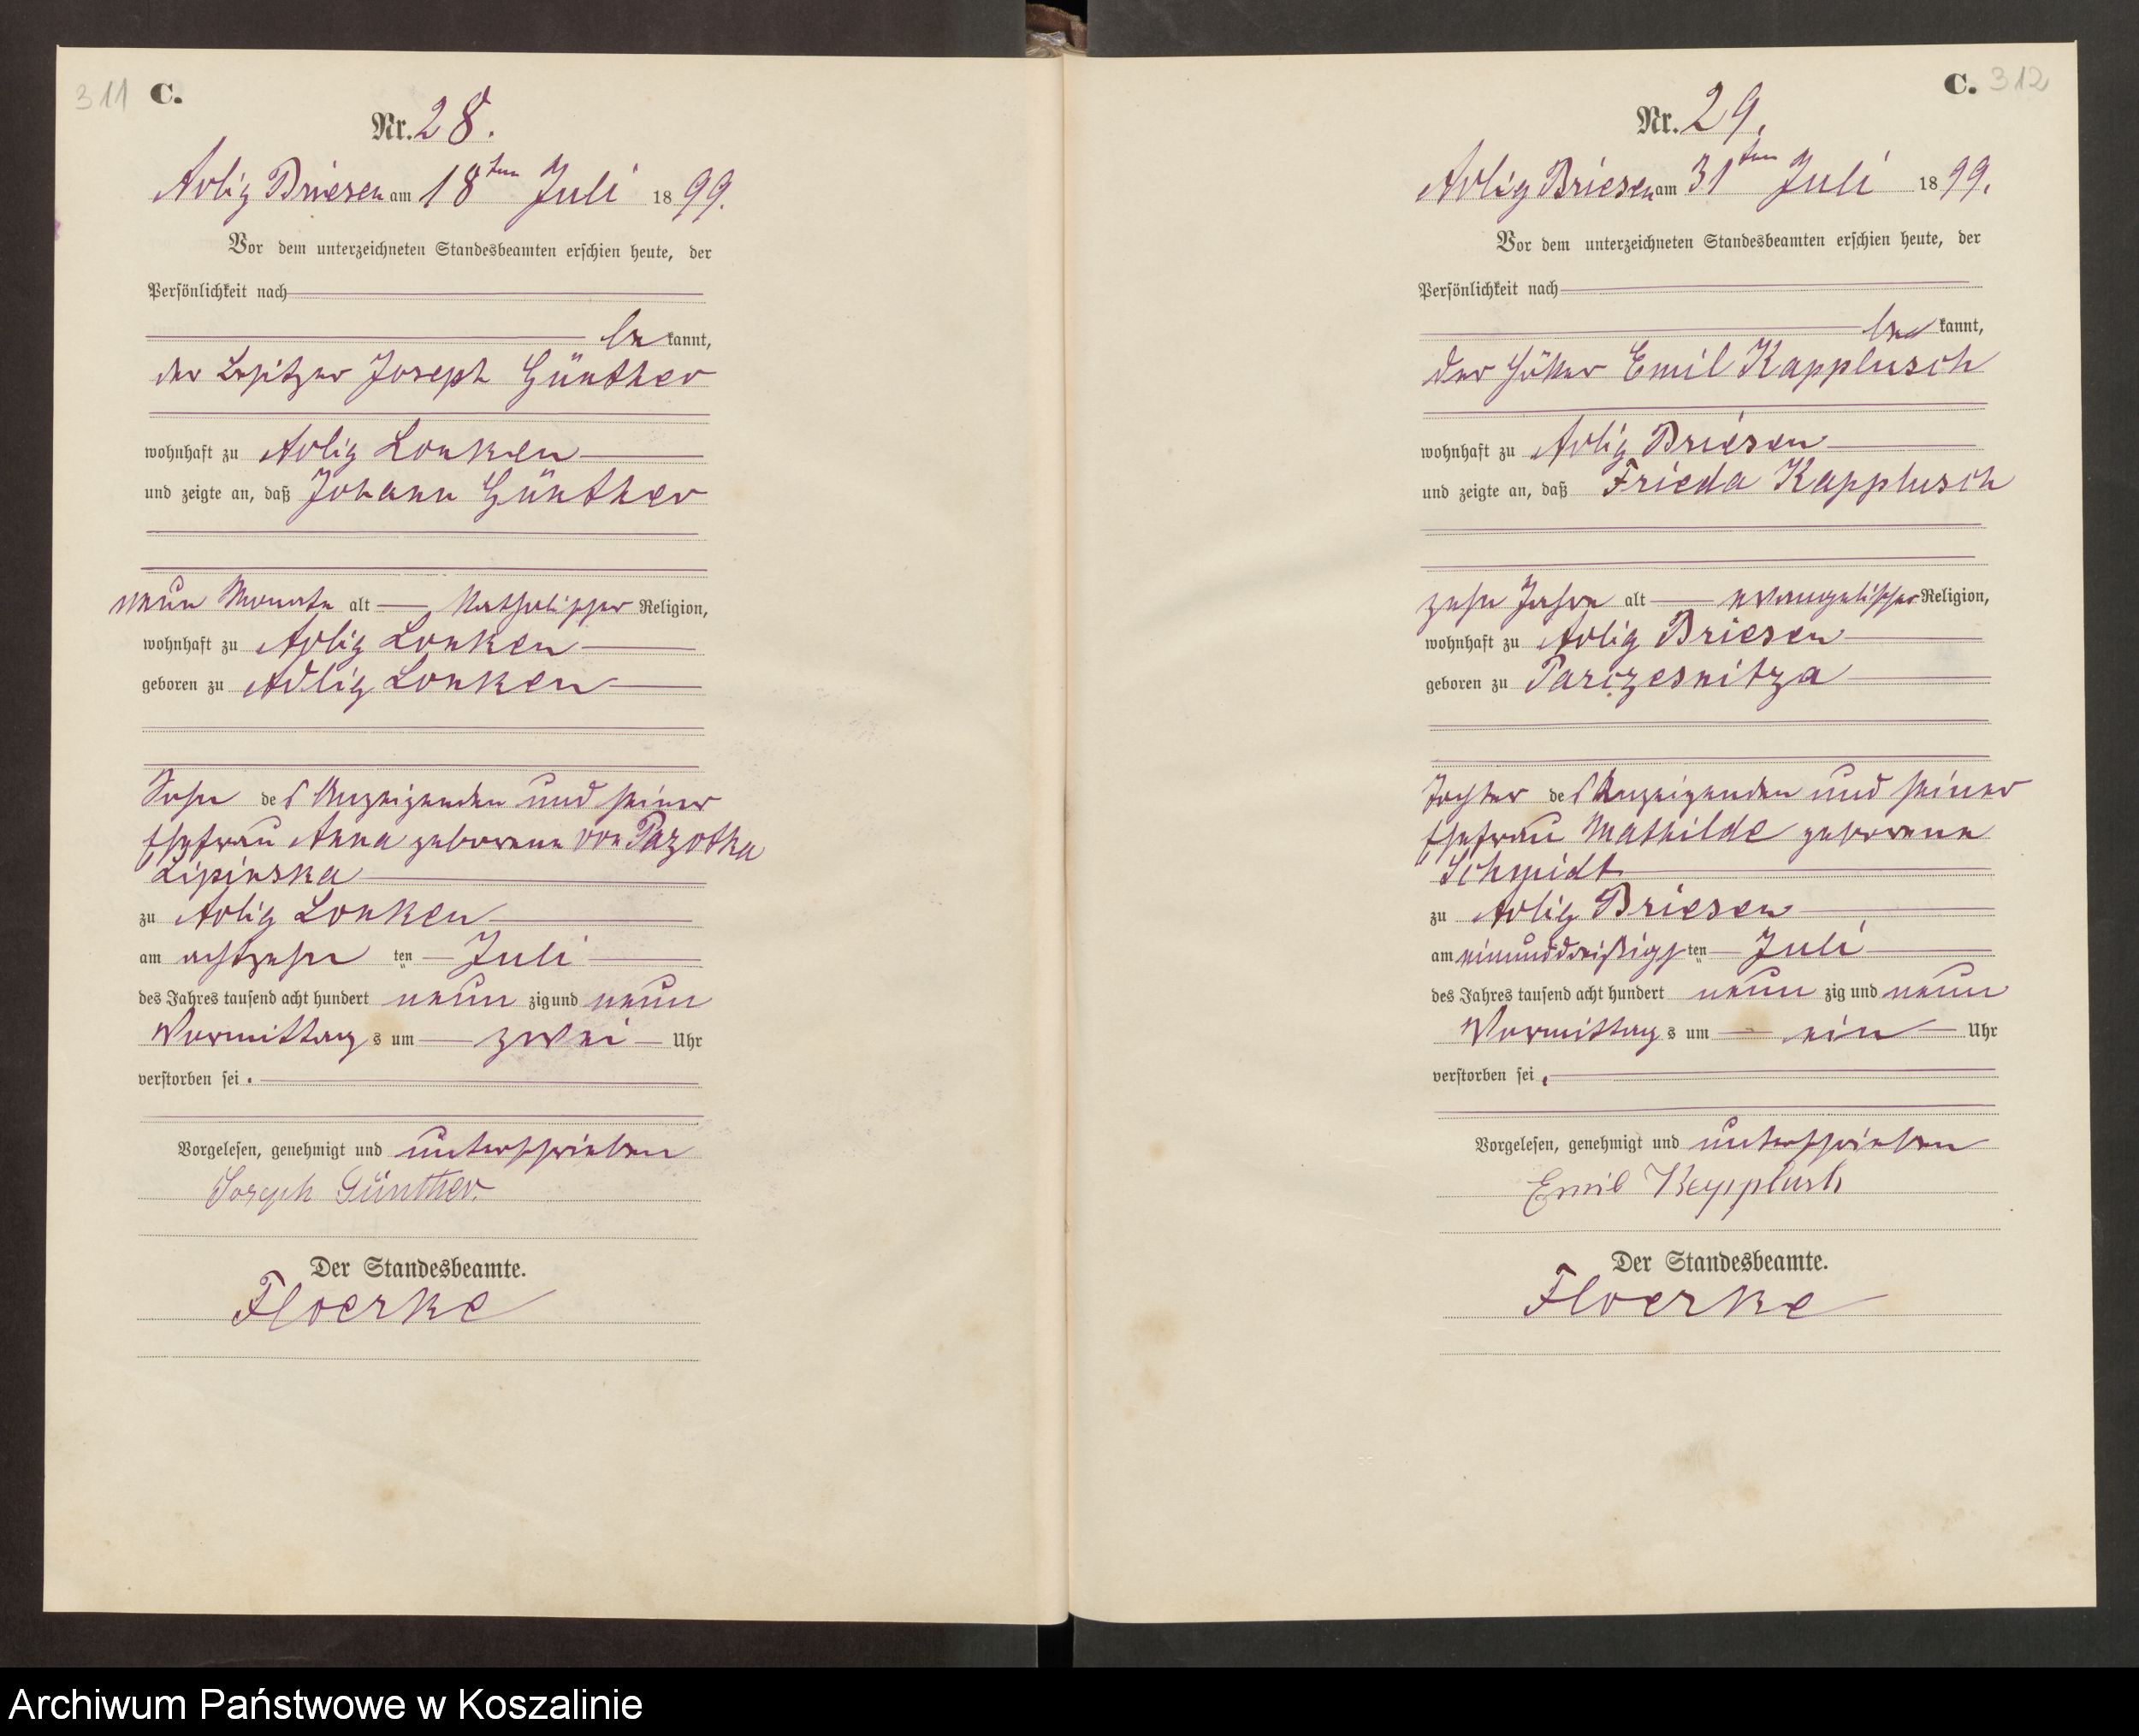 311 C.
Nr. 28.
Adlig Briesen am 18ten Juli 1899.
Vor dem unterzeichneten Standesbeamten erschien heute, der
Persönlichkeit nach
be kannt,
der Besitzer Joseph Günther
wohnhaft zu Adlig Lonken
und zeigte an, daß Johann Günther
neun Monate alt katholischer Religion,
wohnhaft zu Adlig Lonken
geboren zu Adlig Lonken
Sohn des Anzeigenden und seiner
Ehefrau Anna geborene von Pazotka
Lipinska
zu Adlig Lonken
am achtzehn ten Juli
des Jahres tausend acht hundert neun zig und neun
Vormittag s um zwei Uhr
verstorben sei.
Vorgelesen, genehmigt und unterschrieben
Joseph Günther.
Der Standesbeamte.
Floerke
C. 312
Nr. 29.
Adlig Briesen am 31ten Juli 1899.
Vor dem unterzeichneten Standesbeamten erschien heute, der
Persönlichkeit nach
be kannt,
der Höker Emil Kapplusch
wohnhaft zu Adlig Briesen
und zeigte an, daß Frieda Kapplusch
zehn Jahre alt evangelischer Religion,
wohnhaft zu Adlig Briesen
geboren zu Parczesnitza
Tochter des Anzeigenden und seiner
Ehefrau Mathilde geborene
Schmidt
zu Adlig Briesen
am einunddreißigs ten Juli
des Jahres tausend acht hundert neun zig und neun
Vormittag s um ein Uhr
verstorben sei.
Vorgelesen, genehmigt und unterschrieben
Emil Kapplusch
Der Standesbeamte.
Floerke
Archiwum Państwowe w Koszalinie